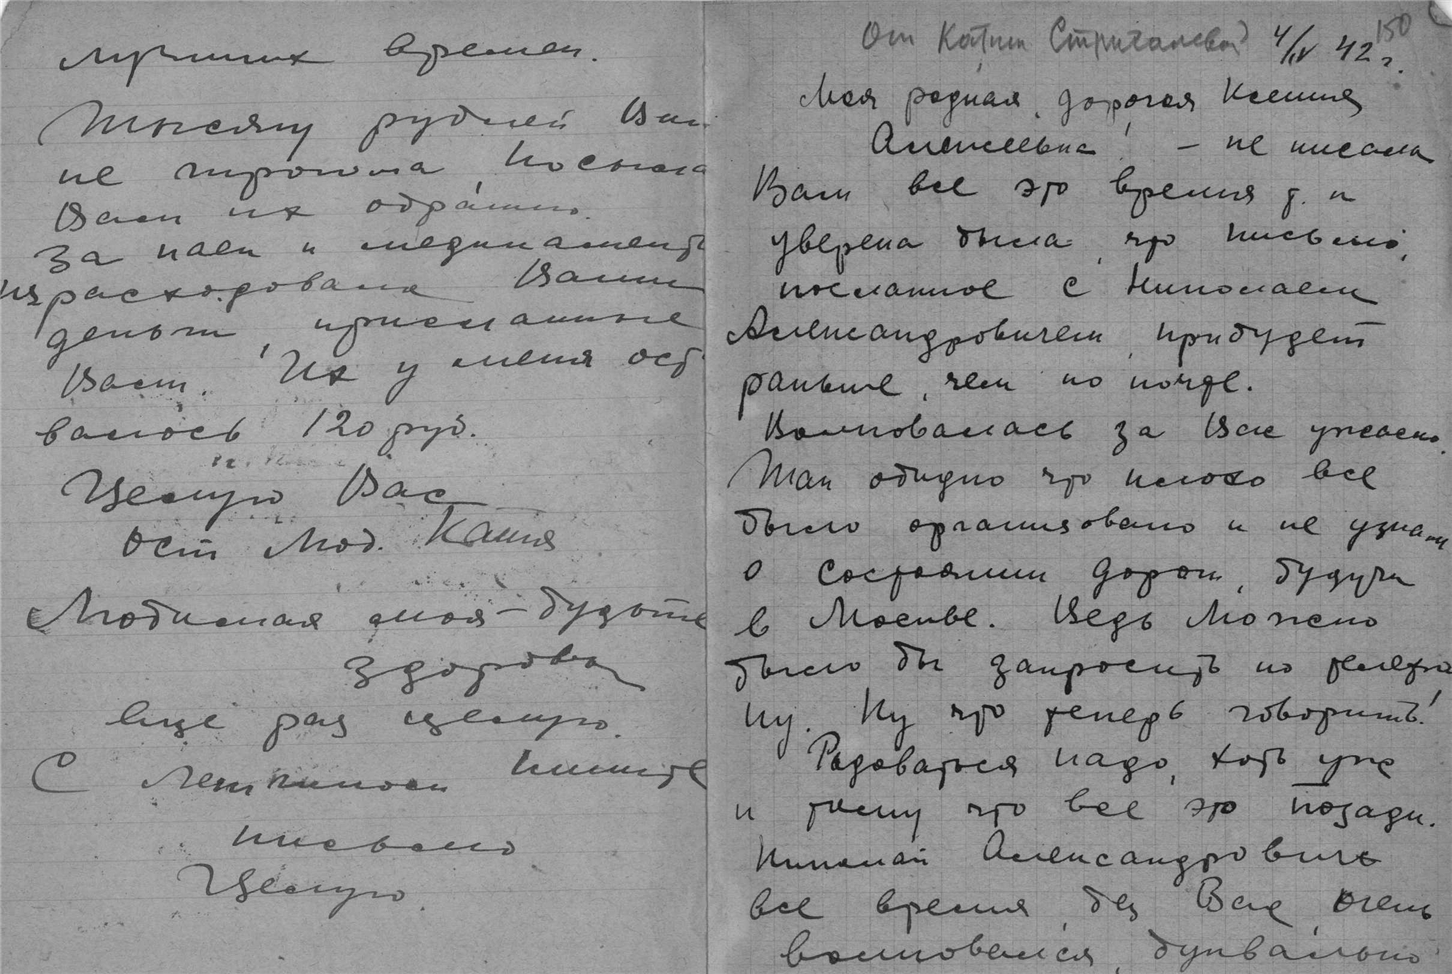 лучших времен.
Тысячу рублей Ваш
не трогала, посыла
Вам их обратно.
За паек и медикамент
израсходована Ваши
деньги, присланные
Вами. Их у меня оста
валось 120 руб.
Целую Вас
ост. Люб. Катя
Любимая моя – будьте
здорова
еще раз целую.
С пишите
письмо
Целую.
От Кати Стригалевой
4/IV 42 г.
150
Моя родная, дорогая Ксения
Алексеевна! – не писала
Вам все это время т. к
уверена была, что письмо,
посланное с Николаем
Александровичем, прибудет
раньше, чем по почте.
Волновалась за Вас ужасно.
Так обидно что плохо все
было организовано и не узнали
о состоянии дорог, будучи
в Москве. Ведь можно
было бы запросить по телефо
ну. Ну что теперь говорить!
Радоваться надо, хоть уже
и тому что все это позади.
Николай Александрович
все время без Вас очень
волновался, буквально